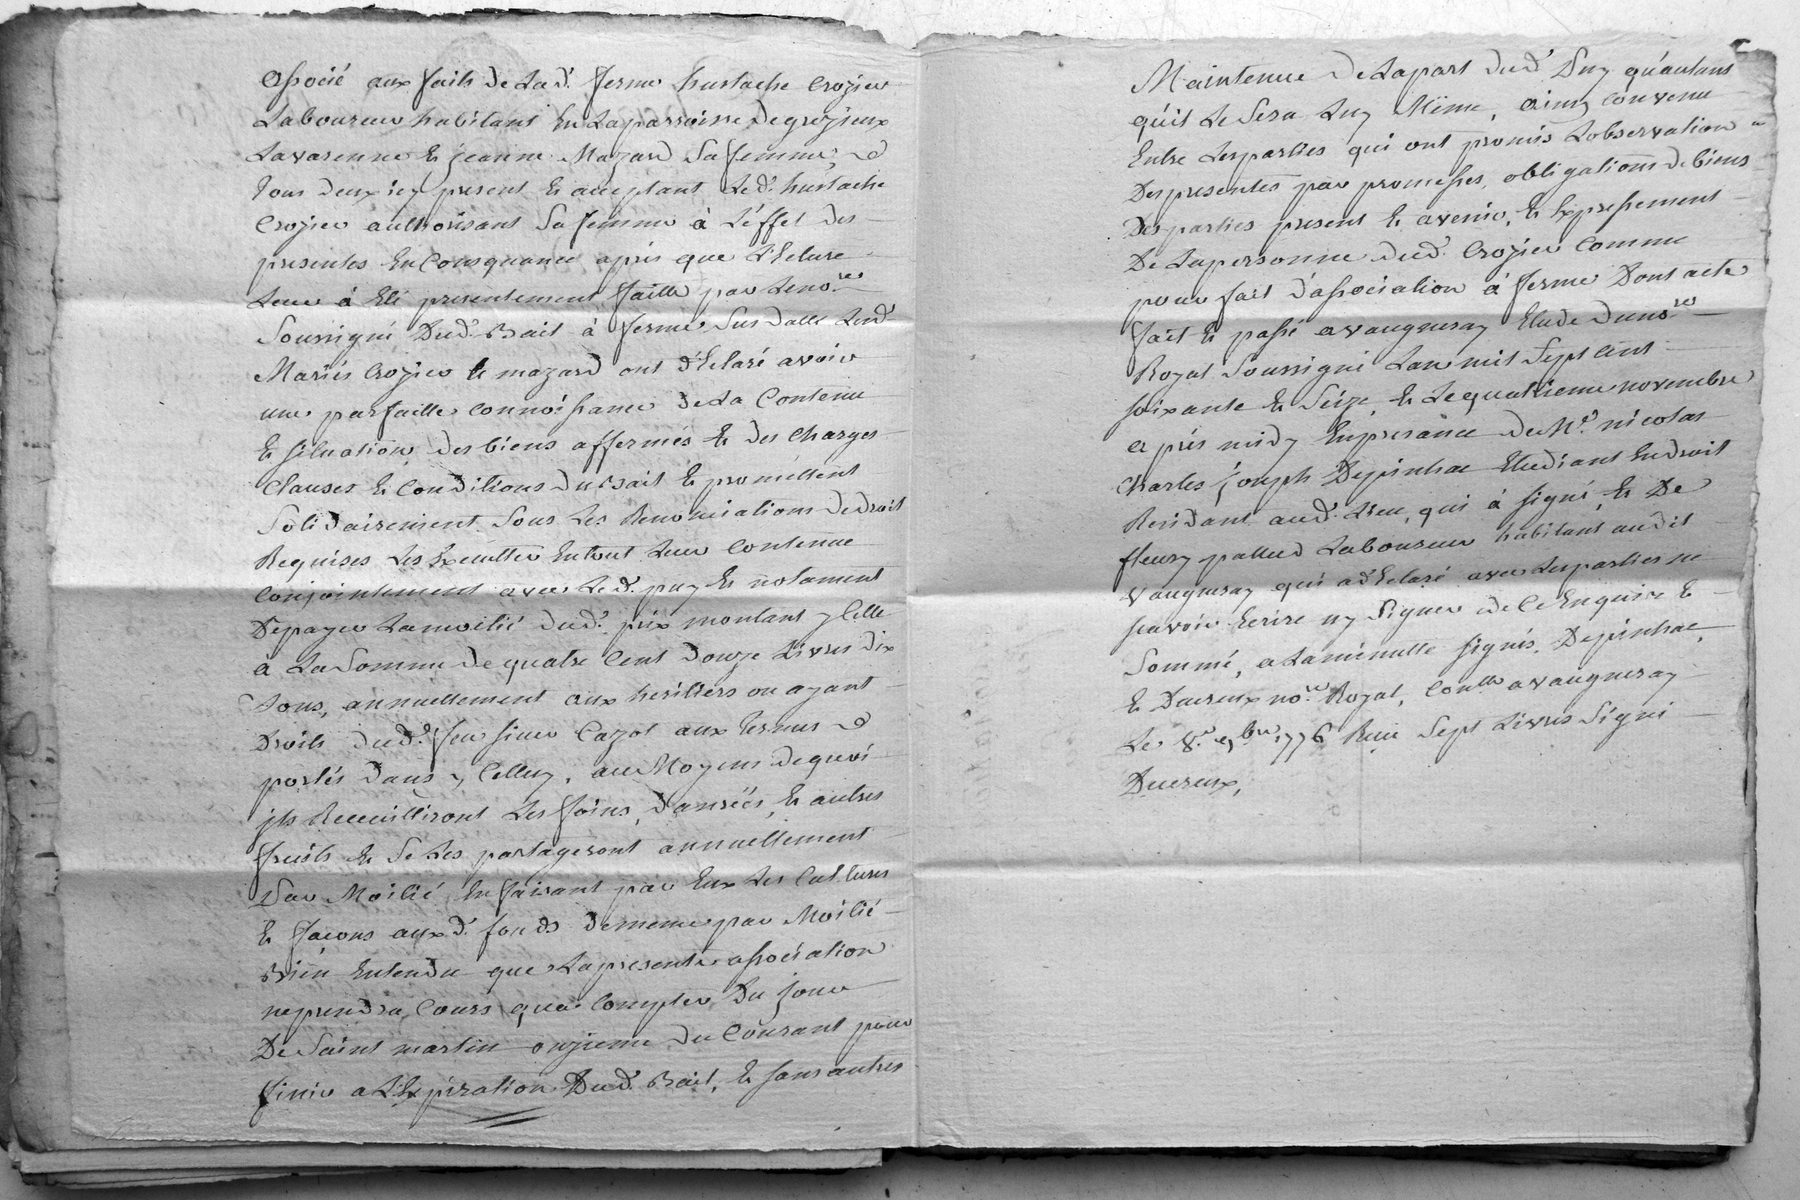 associé aux faits de la d.^e ferme hustache Crozier
Laboureur habitant en la parroisse de grezieux
Lavarenne et jeanne Mazard sa femme,
Tous deux icy present et acceptant Le d.^t hustache
Crozier authorisant sa femme à L'effet des
presentes En Consequance après que Lecture
Leur à Eté presentement faitte par Le no.^re
soussigné Dud.^t Bail à ferme susdatté Lesd.
Mariés Crozier et mazard ont déclaré avoir
une parfaitte connoissance de La Contenue
Et situation des biens affermés et des charges
Clauses et Conditions du Bail et promettent
solidairement sous Les Renonciations de droit
Requises Les Executter En tout Leur Contenue
Conjointement avec Le d.^t puy et notament
De payer La moitié dud.^t prix montant y Celle
à La somme de quatre Cent douze Livres dix
sous, annuellement aux heritiers ou ayant
Droits dud.^t feu sieur Cazot aux termes
portés dans y Celluy, au Moyens de quoi
ils Recueilliront Les foins, danrées, et autres
fruits et se Les partageront annuellement
Par Moitié, En faisant par Eux Les Cultures
Et façons auxd.^t fonds de meme par Moitié
Bien Entendu que La presente association
ne prendra Cours qu'a Compter du jour
De Saint martin onzieme du Courant pour
finir a L'Expiration Dud.^t Bail, et sans autres
Maintenue de La part dud.^t Puy qu'autant
qu'il Le sera Luy Même, ainsy Convenu
Entre Les parties qui ont promis L'observation
Des presentes par promesses, obligations de biens
Des parties present et avenir, et Expressement
De La personne dud.^t Crozier Comme
pour fait d'association à ferme Dont acte
fait et passé a vaugneray Etude du no.^re
Royal soussigné L'an mil sept Cent
soixante et seize, et Le quatrieme novembre
après midy En presance de M.^e nicolas
Charles joseph Depinhac Etudiant En droit
Residant aud.^t Lieu, qui à signé, et De
fleury pallud Laboureur habitant audit
vaugneray qui a déclaré avec Les parties ne
sçavoir Ecrire ny signer de Ce Enquis et
sommé, a La minutte signés, Depinhac,
Et Ducreux no.^re Royal, Con.^llé a vaugneray
Le 8.^e 9^bre 1776 Reçu sept Livres signé
Ducreux,